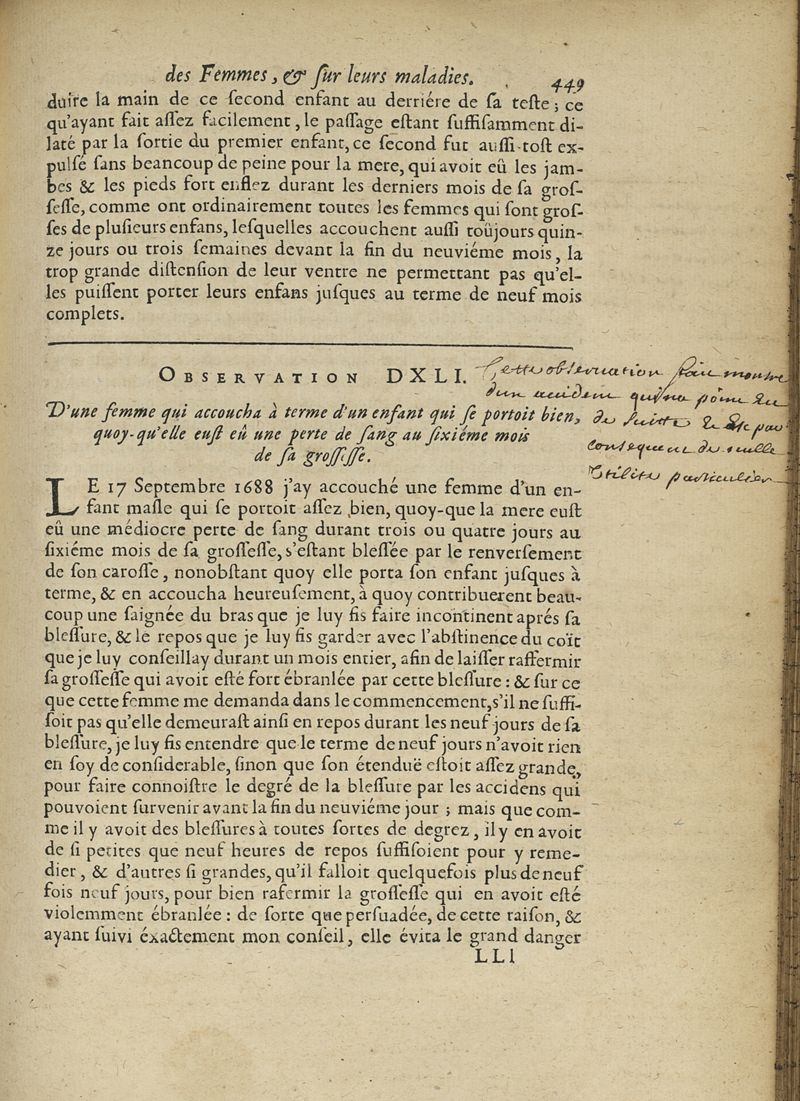 des Femmes, & ſur leurs maladies. 449
duire la main de ce ſecond enfant au derriére de ſa teſte ; ce
qu'ayant fait aſſez facilement, le paſſage eſtant ſuffiſamment di-
laté par la ſortie du premier enfant, ce ſecond fut auſſi-toſt ex-
pulſé ſans beancoup de peine pour la mere, qui avoit eû les jam-
bes & les pieds fort enflez durant les derniers mois de ſa groſ-
ſeſſe, comme ont ordinairement toutes les femmes qui ſont groſ-
ſes de pluſieurs enfans, leſquelles accouchent auſſi toûjours quin-
ze jours ou trois ſemaines devant la fin du neuviéme mois, la
trop grande diſtenſion de leur ventre ne permettant pas qu'el-
les puiſſent porter leurs enfans juſques au terme de neuf mois
complets.
OBSERVATION DXLI.
D'une femme qui accoucha à terme d'un enfant qui ſe portoit bien,
quoy-qu'elle euſt eû une perte de ſang au ſixiéme mois
de ſa groſſeſſe.
LE 17 Septembre 1688 j'ay accouché une femme d'un en-
fant maſle qui ſe portoit aſſez bien, quoy-que la mere euſt
eû une médiocre perte de ſang durant trois ou quatre jours au
ſixiéme mois de ſa groſſeſſe, s'eſtant bleſſée par le renverſement
de ſon caroſſe, nonobſtant quoy elle porta ſon enfant juſques à
terme, & en accoucha heureuſement, à quoy contribuerent beau-
coup une ſaignée du bras que je luy fis faire incontinent aprés ſa
bleſſure, & le repos que je luy fis garder avec l'abſtinence du coït
que je luy conſeillay durant un mois entier, afin de laiſſer raffermir
ſa groſſeſſe qui avoit eſté fort ébranlée par cette bleſſure : & ſur ce
que cette femme me demanda dans le commencement, s'il ne ſuffi-
ſoit pas qu'elle demeuraſt ainſi en repos durant les neuf jours de ſa
bleſſure, je luy fis entendre que le terme de neuf jours n'avoit rien
en ſoy de conſiderable, ſinon que ſon étenduë eſtoit aſſez grande,
pour faire connoiſtre le degré de la bleſſure par les accidens qui
pouvoient ſurvenir avant la fin du neuviéme jour ; mais que com-
me il y avoit des bleſſures à toutes ſortes de degrez, il y en avoit
de ſi petites que neuf heures de repos ſuffiſoient pour y reme-
dier, & d'autres ſi grandes, qu'il falloit quelquefois plus de neuf
fois neuf jours, pour bien rafermir la groſſeſſe qui en avoit eſté
violemment ébranlée : de ſorte que perſuadée, de cette raiſon, &
ayant ſuivi éxactement mon conſeil, elle évita le grand danger
LLl
Cette observation
d'un accident qui n'a point eu
de suites
utilité particulière